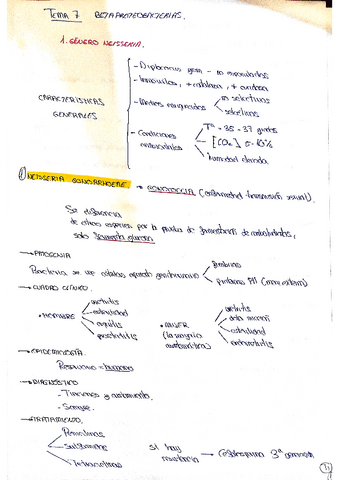 TEMA 7 BETAPROTEOBACTERIAS.
1. GÉNERO NEISSERIA.
CARACTERÍSTICAS GENERALES
- Diplococos gram - no esporulados
- Inmóviles, + catalasa, + oxidasa
- Medios enriquecidos
no selectivos
selectivos
- Condiciones ambientales
Tª - 35 - 37 grados
[CO2] 5 - 10%
humedad elevada
① NEISSERIA GONORRHOEAE. → GONORREA (enfermedad transmisión sexual).
Se diferencia
de otras especies por la prueba de fermentación de carbohidratos,
solo fermenta glucosa
→ PATOGENIA
Bacteria se une
proteína PII
→ CUADRO CLÍNICO.
• HOMBRE
uretritis
proctitis
• MUJER
(la mayoría asintomática)
uretritis
→ EPIDEMIOLOGÍA.
Reservorio = humano
→ DIAGNÓSTICO
- Tinciones y aislamiento.
- Siempre.
→ TRATAMIENTO.
Penicilinas
Tetraciclinas
si hay resistencia → Cefalosporina 3ª generación